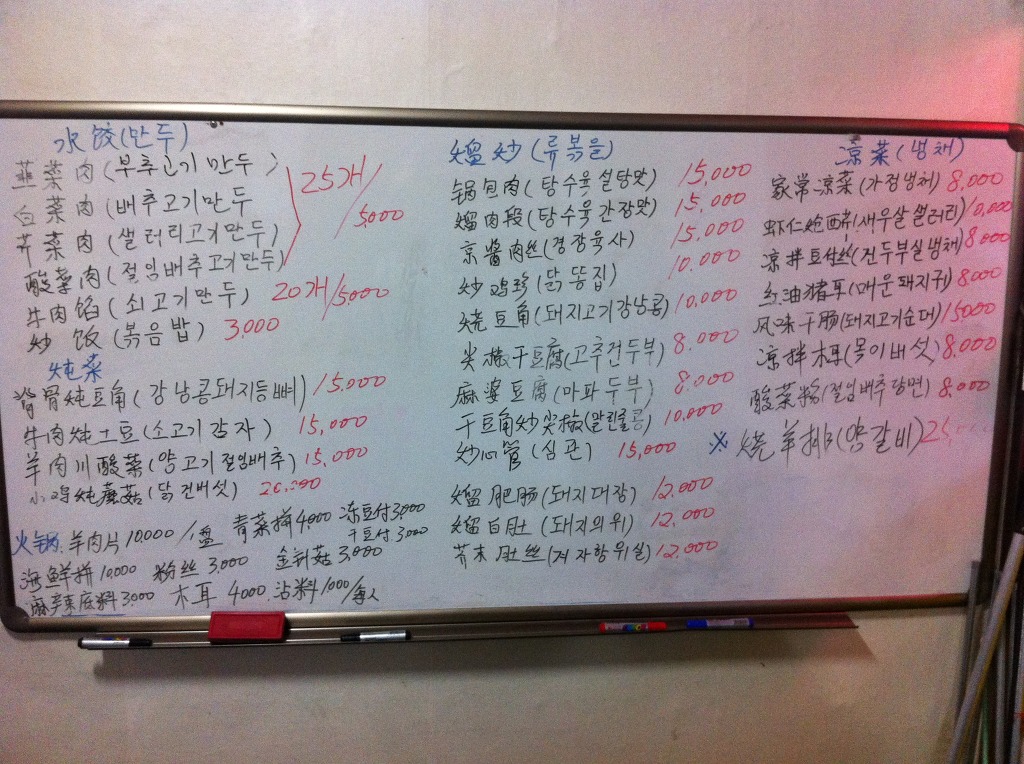 水饺(만두)
韭菜肉(부추고기만두)
白菜肉(배추고기만두
芹菜肉(샐러리고기만두)
25개/5,000
酸菜肉(절임배추고기만두)
牛肉馅(쇠고기만두) 20개/5000
炒饭(볶음밥) 3,000
炖菜
脊骨炖豆角(강남콩돼지등뼈) 15,000
牛肉炖土豆(소고기감자) 15,000
羊肉川酸菜(양고기절임배추) 15,000
小鸡炖蘑菇(닭건버섯)
火锅 羊肉片 10,000/1盘 青菜拼 4,000 冻豆付 3,000
干豆付 3,000
海鲜拼 10,000 粉丝 3,000 金针菇 3,000
麻辣底料 3,000 木耳 4000 沾料 1000/每人
熘炒(류볶음)
锅包肉(탕수육설탕맛) 15,000
熘肉段(탕수육간장맛) 15,000
京酱肉丝(경장육사) 15,000
炒鸡珍(닭똥집) 10,000
烧豆角(돼지고기강남콩) 10,000
尖椒干豆腐(고추건두부) 8,000
麻婆豆腐(마파두부) 8,000
干豆角炒尖椒(말린줄콩) 10,000
炒心管(심관) 15,000
熘肥肠(돼지대장) 12,000
熘白肚(돼지의위) 12,000
芥末肚丝(겨자향위실) 12,000
凉菜(냉채)
家常凉菜(가정냉채) 8,000
虾仁炝西芹(새우살샐러리) 10,000
凉拌豆付丝(건두부실냉채) 8,000
红油猪耳(매운돼지귀) 8,000
风味干肠(돼지고기순대) 15000
凉拌木耳(목이버섯) 8,000
酸菜粉(절임배추당면) 8,000
※ 烧羊排(양갈비)